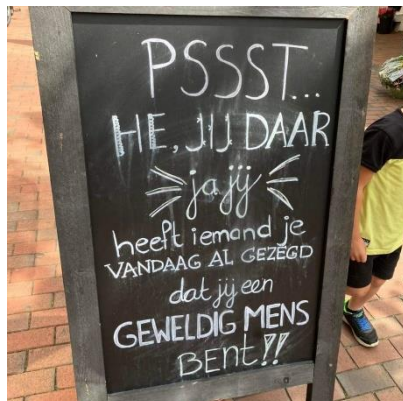 PSSST...
HE, JIJ DAAR
ja jij
heeft iemand je
VANDAAG AL GEZEGD
dat jij een
GEWELDIG MENS
BENT!!